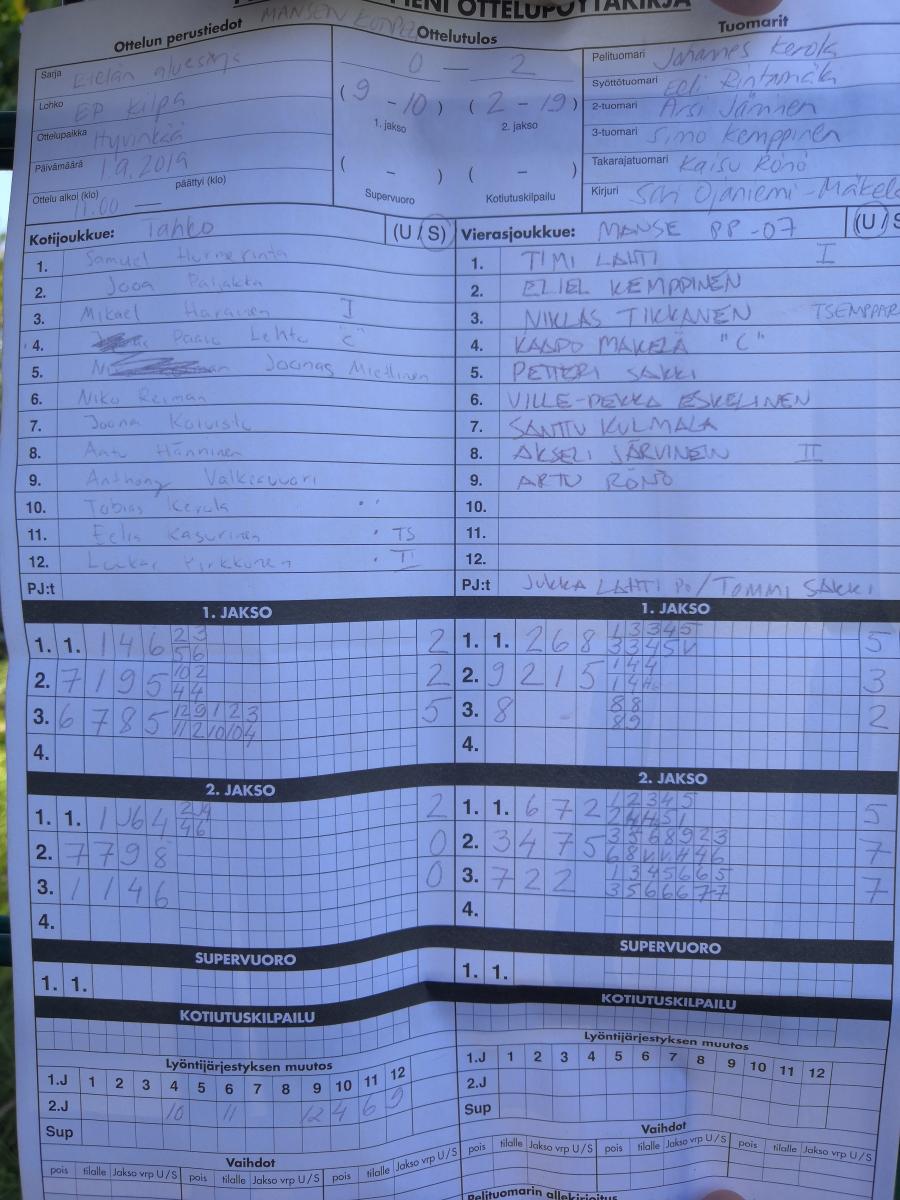 Ottelun perustiedot
Ottelutulos
Tuomarit
Sarja
Lohko EP Kilpa
Ottelupaikka Hyvinkää
Päivämäärä 1.9.2019
Ottelu alkoi (klo) 11.00 päättyi (klo) —
0 — 2
( 9 - 10 ) ( 2 - 19 )
1. jakso 2. jakso
( - ) ( - )
Supervuoro Kotiutuskilpailu
Pelituomari Johannes Kerola
Syöttötuomari Eeli Rintamäki
2-tuomari Arsi Jäminen
3-tuomari Simo Kemppinen
Takarajatuomari Kaisu Rönö
Kirjuri Ojaniemi-Mäkelä
Kotijoukkue: Tahko (U / S)
1. Samuel Hurmerinta
2. Joona
3. Mikael I
4. Paavo Lehto "C"
5. Joonas Miettinen
6. Niko Reiman
7. Joona Koivisto
8. Hänninen
9. Anthony Valkeavuori
10. Tobias Kerola
11. Eelis Kasurinen TS
12. Pirkkonen
PJ:t
Vierasjoukkue: MANSE PP-07 (U / S)
1. TIMI LAHTI I
2. ELIEL KEMPPINEN
3. NIKLAS TIKKANEN TSEMPPAR
4. KAAPO MÄKELÄ "C"
5. PETTERI SAKKI
6. VILLE-PEKKA ESKELINEN
7. SANTTU KULMALA
8. AKSELI JÄRVINEN II
9. ARTU RÖNÖ
10.
11.
12.
PJ:t JUKKA LAHTI PJ/TOMMI SAKKI
1. JAKSO
1. 1. 1 4 6 2 3 2
5 6
2. 7 1 9 5 10 2 2
4 4
3. 6 7 8 5 12 9 1 2 3 5
11 2 10 10 4
4.
1. JAKSO
1. 1. 2 6 8 1 3 3 4 5 5
3 3 4 5 V
2. 9 2 1 5 1 4 4 3
1 4
3. 8 - 8 8 2
8 9
4.
2. JAKSO
1. 1. 1 6 4 2 4 2
4 6
2. 7 7 9 8 0
3. 1 1 4 6 0
4.
2. JAKSO
1. 1. 6 7 2 1 2 3 4 5 5
2 4 4 5 1
2. 3 4 7 5 3 5 6 8 9 2 3 7
6 8 V V 4 4 6
3. 7 2 2 1 3 4 5 6 6 5 7
3 5 6 6 6 7 7
4.
SUPERVUORO
1. 1.
KOTIUTUSKILPAILU
SUPERVUORO
1. 1.
KOTIUTUSKILPAILU
Lyöntijärjestyksen muutos
1.J 1 2 3 4 5 6 7 8 9 10 11 12
2.J 10 11 12 4 6 9
Sup
Vaihdot
pois tilalle Jakso vrp U/S pois tilalle Jakso vrp U/S pois tilalle Jakso vrp U/S
Lyöntijärjestyksen muutos
1.J 1 2 3 4 5 6 7 8 9 10 11 12
2.J
Sup
Vaihdot
pois tilalle Jakso vrp U/S pois tilalle Jakso vrp U/S pois tilalle Jakso vrp U/S
Pelituomarin allekirjoitus